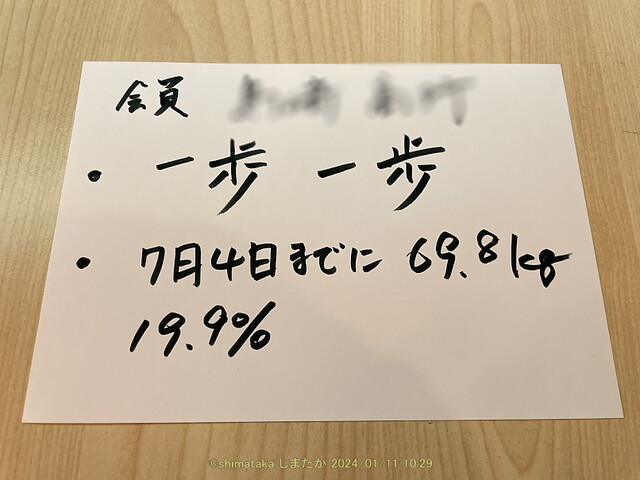 会員
・一歩 一歩
・7月4日までに 69.8kg
19.9%
©shimataka しまたか 2024/01/11 10:29